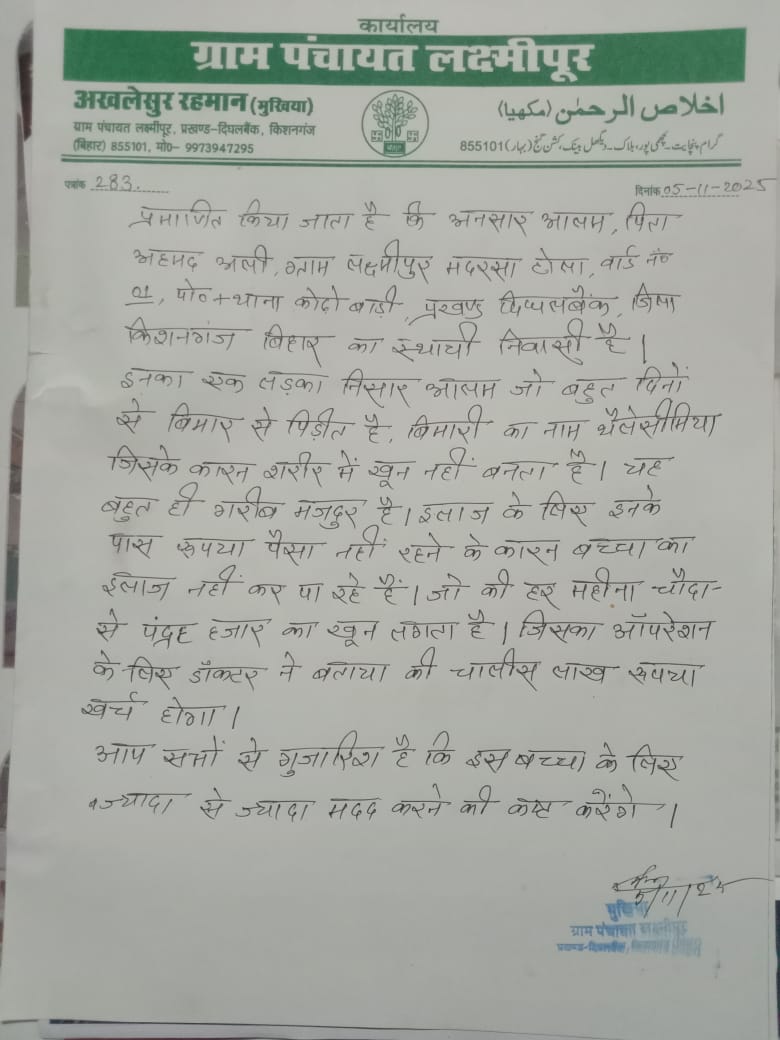 कार्यालय
ग्राम पंचायत लक्ष्मीपूर
अखलेसुर रहमान (मुखिया)
ग्राम पंचायत लक्ष्मीपूर, प्रखण्ड-दिघलबैंक, किशनगंज
(बिहार) 855101, मो०- 9973947295
اخلاص الرحمٰن (مکھیا)
گرام پنچایت۔ لکچھمی پور، بلاک۔ دیگھل بینک، کشن گنج (بہار) 855101
पत्रांक 283.
दिनांक 05-11-2025
प्रमाणित किया जाता है कि अनसार आलम, पिता
अहमद अली, ग्राम लक्ष्मीपुर मदरसा टोला, वार्ड नं०
01, पो०+थाना कोढ़ोबाड़ी, प्रखण्ड दिघलबैंक, जिला
किशनगंज बिहार का स्थायी निवासी है।
इनका एक लड़का निसार आलम जो बहुत दिनों
से बिमार से पिड़ीत है, बिमारी का नाम थैलेसीमिया
जिसके कारन शरीर में खून नहीं बनता है। यह
बहुत ही गरीब मजदुर है। इलाज के लिए इनके
पास रूपया पैसा नहीं रहने के कारन बच्चा का
इलाज नहीं कर पा रहे हैं। जो की हर महीना चौदा-
से पंद्रह हजार का खून लगता है। जिसका ऑपरेशन
के लिए डॉक्टर ने बताया की चालीस लाख रूपया
खर्च होगा।
आप सभों से गुजारिश है कि इस बच्चा के लिए
ज्यादा से ज्यादा मदद करने की कष्ट करेंगे।
5/11/25
मुखिया
ग्राम पंचायत लक्ष्मीपुर
प्रखण्ड-दिघलबैंक, किशनगंज (बिहार)